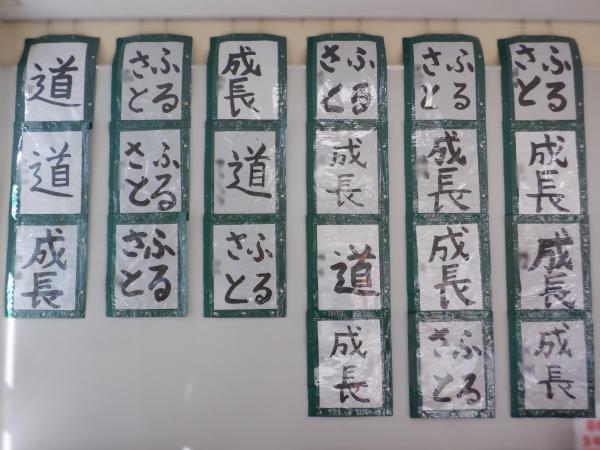 道
道
成長
ふる
さと
ふる
さと
ふる
さと
成長
道
ふる
さと
ふる
さと
成長
道
成長
ふる
さと
成長
成長
ふる
さと
ふる
さと
成長
成長
成長